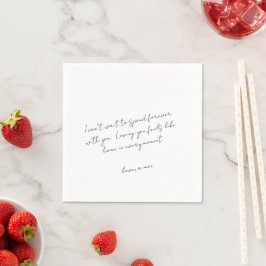 I can't wait to spend forever
with you. Loving you feels like
home in every moment